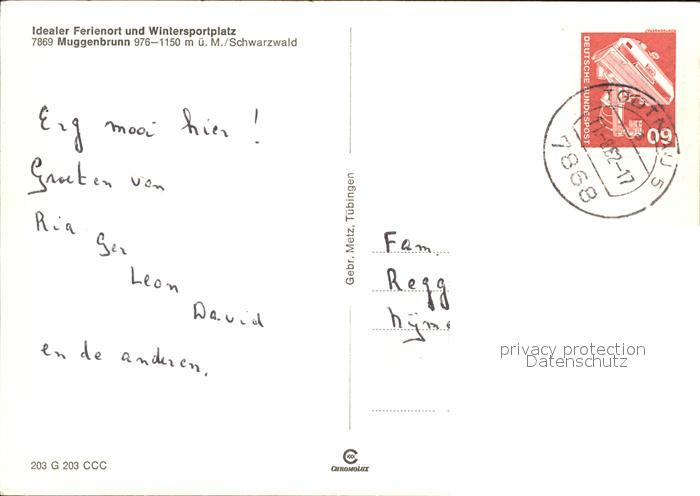 Idealer Ferienort und Wintersportplatz
7869 Muggenbrunn 976–1150 m ü. M./Schwarzwald
Erg mooi hier !
Groeten van
Ria
Ger
Leon
David
en de anderen.
203 G 203 CCC
Gebr. Metz, Tübingen
CHROMOLUX
DEUTSCHE BUNDESPOST
60
7868
5
Fam.
Regg
Nijme
privacy protection
Datenschutz